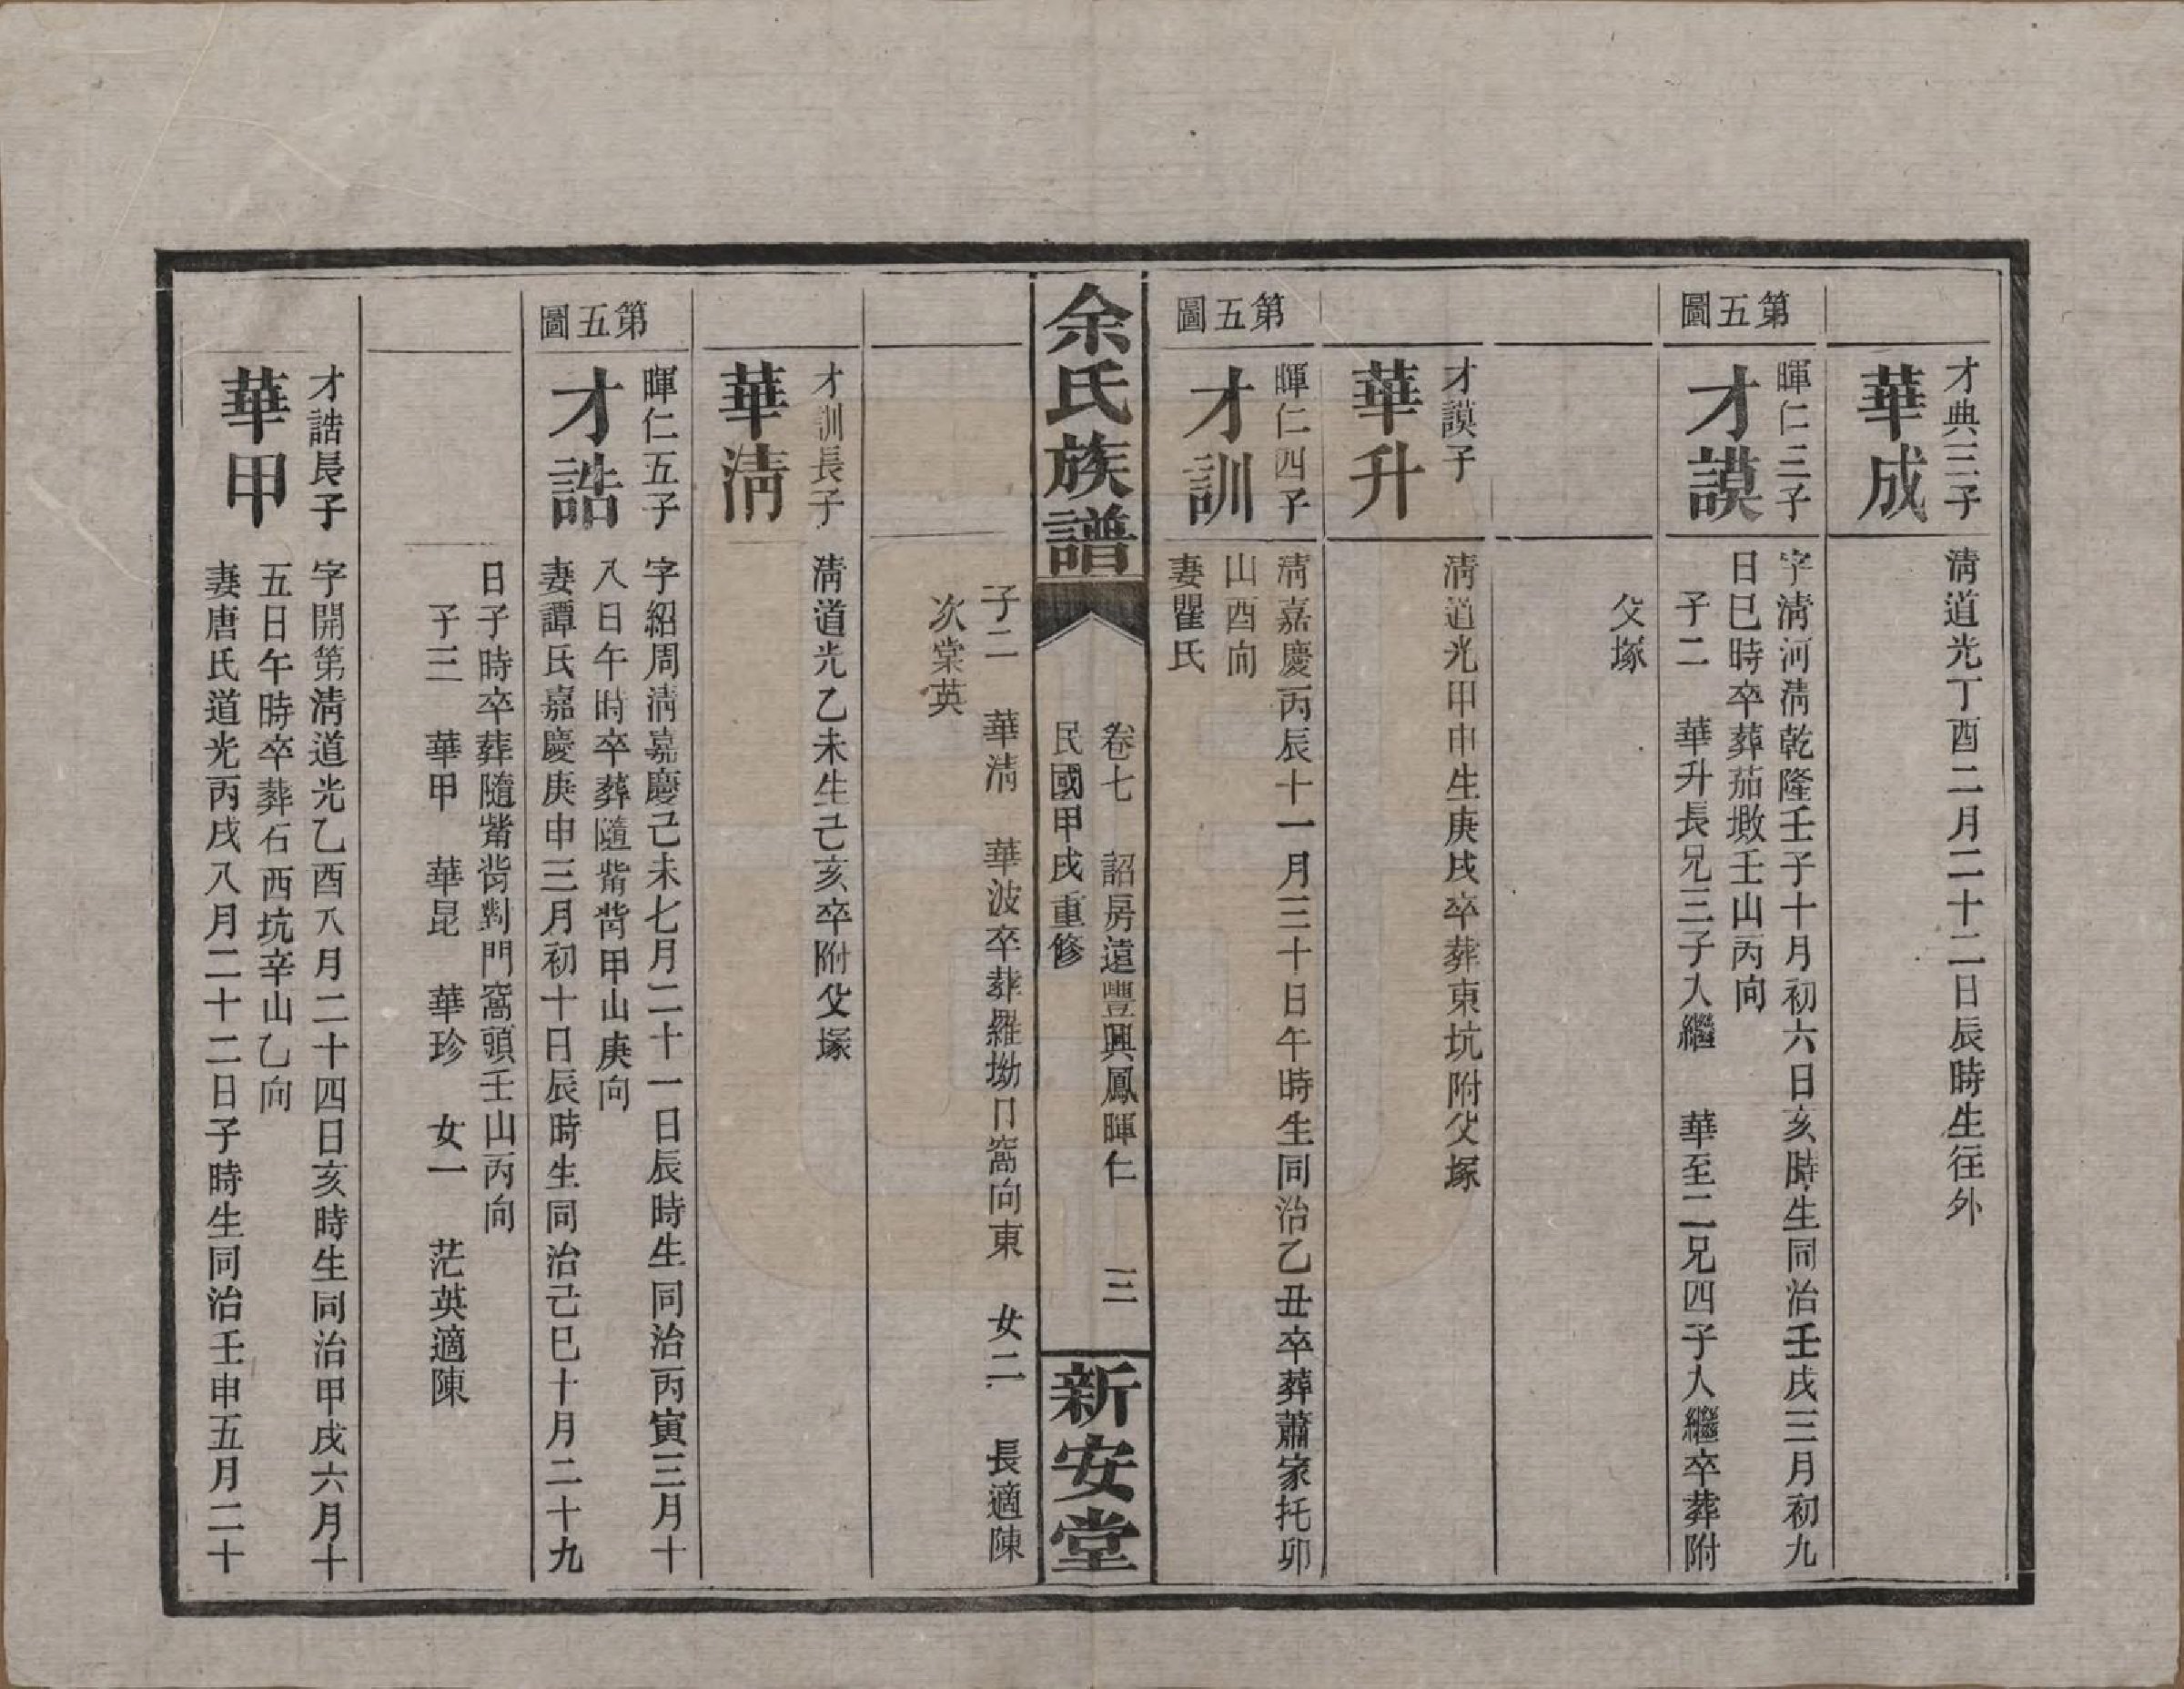 才典三子
華成
清道光丁酉二月二十二日辰時生徃外
第五圖
暉仁三子
才謨
字清河清乾隆壬子十月初六日亥時生同治壬戌三月初九
日巳時卒葬茄墩壬山丙向
子二 華升長兄三子入繼 華至二兄四子入繼卒葬附
父塚
才謨子
華升
清道光甲申生庚戌卒葬東坑附父塚
第五圖
暉仁四子
才訓
清嘉慶丙辰十一月三十日午時生同治乙丑卒葬蕭家托卯
山酉向
妻瞿氏
余氏族譜
卷七 詔房遠豐興鳳暉仁 三
民國甲戌重修
新安堂
子二 華清 華波卒葬羅坳窩向東 女二 長適陳
次棠英
才訓長子
華清
清道光乙未生己亥卒附父塚
第五圖
暉仁五子
才誥
字紹周清嘉慶己未七月二十一日辰時生同治丙寅三月十
八日午時卒葬隨背甲山庚向
妻譚氏嘉慶庚申三月初十日辰時生同治己巳十月二十九
日子時卒葬隨背對門窩頭壬山丙向
子三 華甲 華昆 華珍 女一 茫英適陳
才誥長子
華甲
字開第清道光乙酉八月二十四日亥時生同治甲戌六月十
五日午時卒葬石西坑辛山乙向
妻唐氏道光丙戌八月二十二日子時生同治壬申五月二十